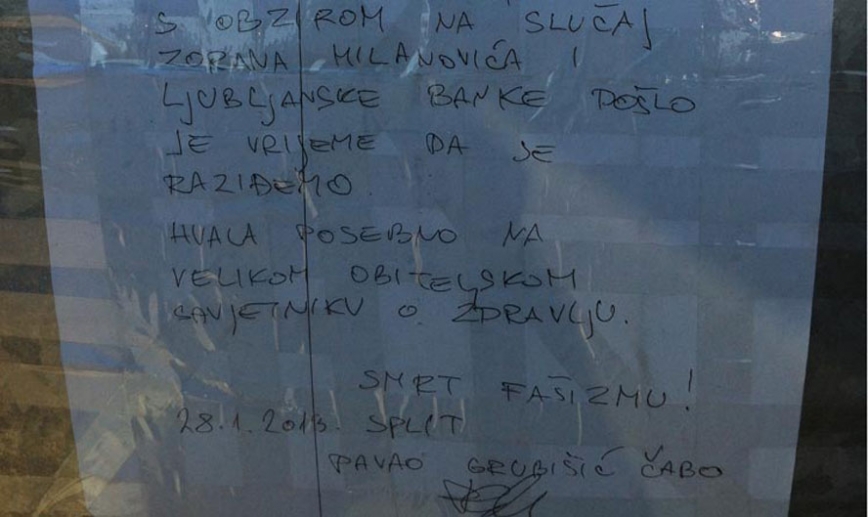 S OBZIROM NA SLUČAJ
ZORANA MILANOVIĆA I
LJUBLJANSKE BANKE DOŠLO
JE VRIJEME DA SE
RAZIĐEMO.
HVALA POSEBNO NA
VELIKOM OBITELJSKOM
SAVJETNIKU O ZDRAVLJU.
SMRT FAŠIZMU!
28.1.2013. SPLIT
PAVAO GRUBIŠIĆ ČABO